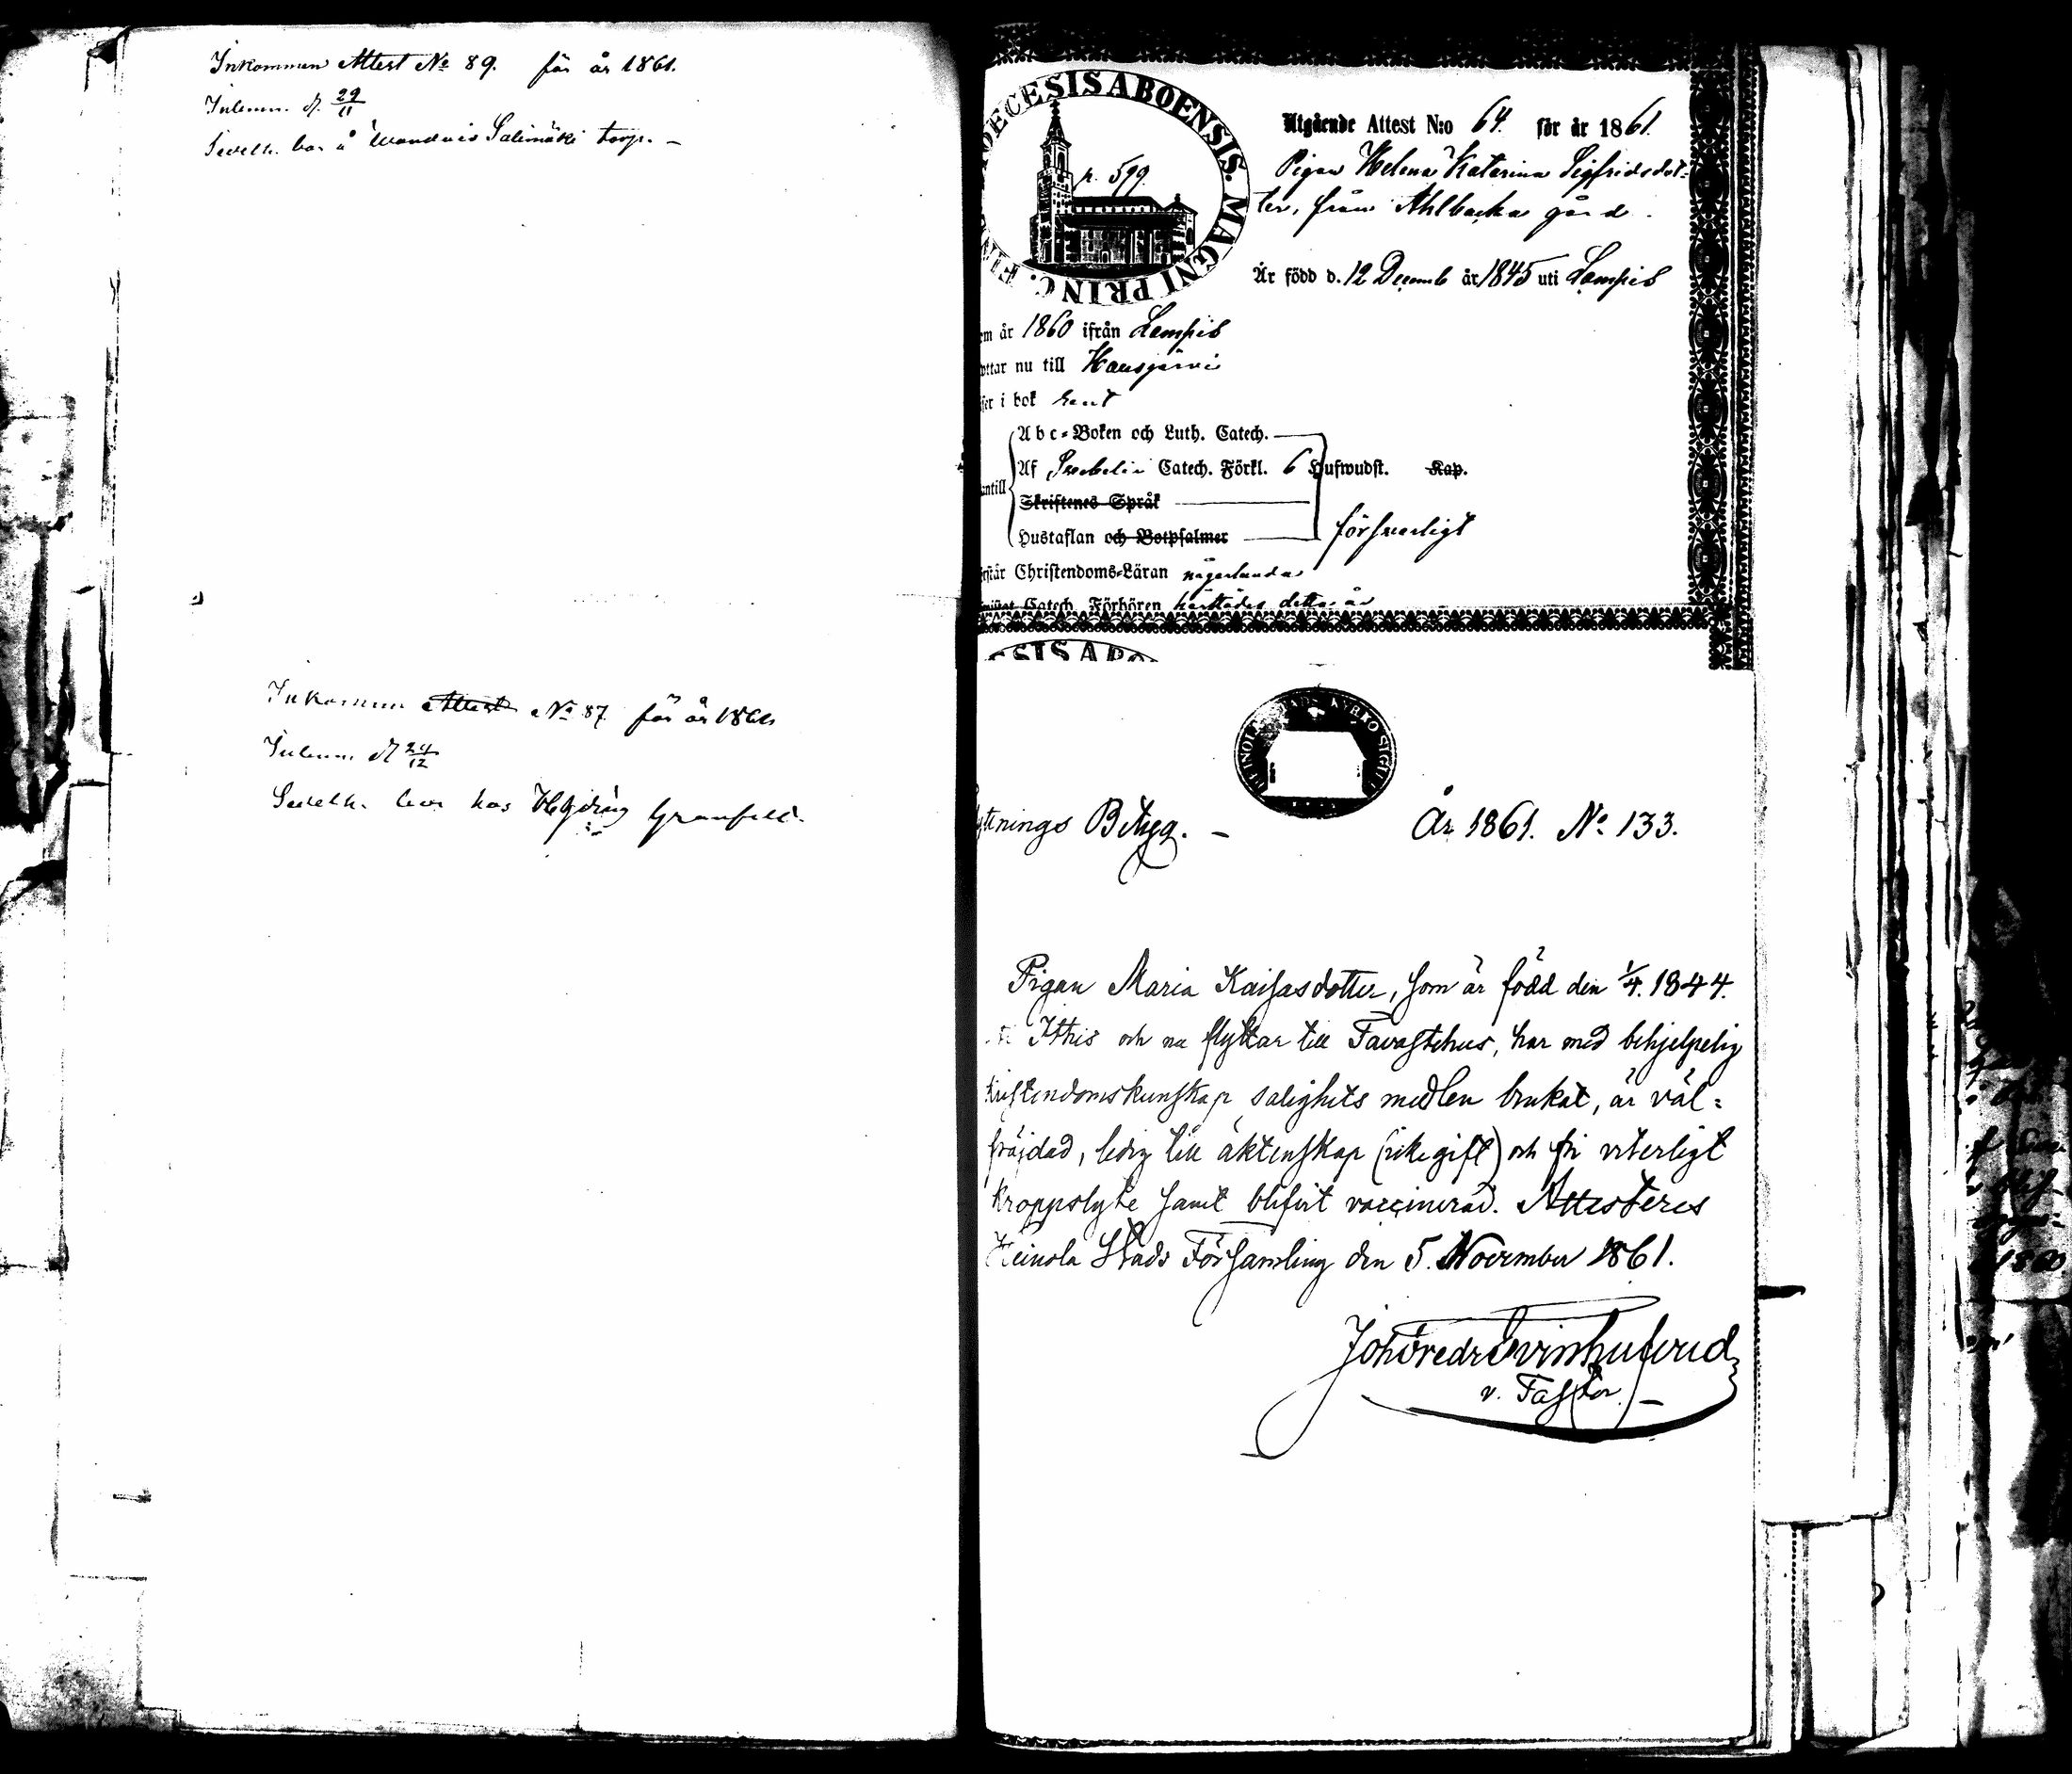 Inkommen Attest No 89. för år 1861.
29/11
bor å Salimäki torp. –
Inkommen Attest No 87 för år 1861
24/12
bor hos Granfelt.
DECESIS ABOENSIS. MAGNI PRINC. FIN
p. 599.
Utgående Attest N:o 64. för år 1861.
Pigan Helena Katarina Sigfridsdot-
ter, från Ahlbacka gård.
Är född d. 12 Decemb år 1845 uti Lampis
em år 1860 ifrån Lampis
ttar nu till Hausjärvi
ser i bok rent
Abc-Boken och Luth. Catech.
Af Svebelii Catech. Förkl. 6 Hufwudst. Kap.
antill
Skriftenes Språk
Hustaflan och Botpsalmer försvarligt
rstår Christendoms-Läran någorlunda
Catech. Förhören detta år
ESIS ABO
HEINOLA STADS KYRKO SIGILL
ttnings Betyg. – År 1861. No 133.
Pigan Maria Kaisasdotter, som är född den 1/4. 1844.
Ithis och nu flyttar till Tavastehus, har med behjelpelig
kristendomskunskap salighets medlen brukat, är väl-
fräjdad, ledig till äktenskap (icke gift) och fri veterligt
kroppslyte samt blifvit vaccinerad. Attesteres
Heinola Stads Församling den 5. November 1861.
Joh Fredr Svinhufvud
v. Pastor. –